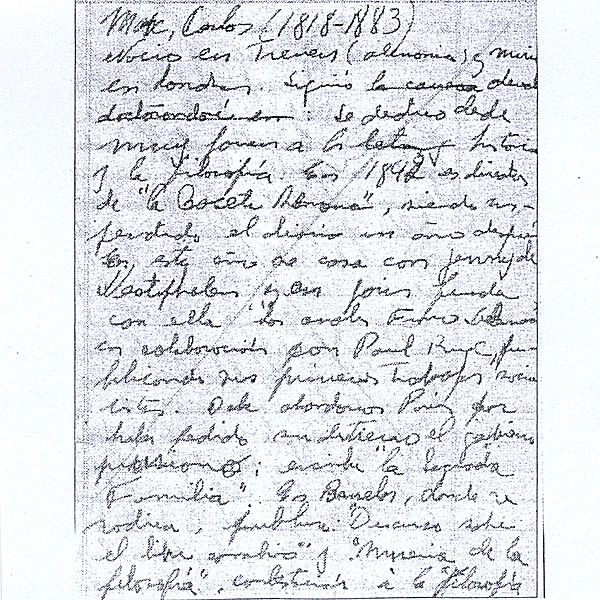 Marx, Carlos (1818-1883)
Nació en Treveris (alemania) y murió
en Londres. Siguió la carrera de
doctorandose en : Se dedicó desde
muy joven a la letras y historia
y la filosofía. En 1842 es director
de "la Gaceta Renana", siendo sus-
pendido el diario un año después
En este año se casa con Jenny de
Westphalen y en París funda
con ella "los anales Franco
en colaboración con Paul Ruge, pu-
blicando sus primeros trabajos socia-
listas. Debe abandonar París por
haber pedido su destierro el gobierno
prusiano; escribe "la Sagrada
Familia". En Bruselas, donde se
radica, publica: "Discurso sobre
el libre cambio" y "Miseria de la
filosofía", contestación a la "Filosofía